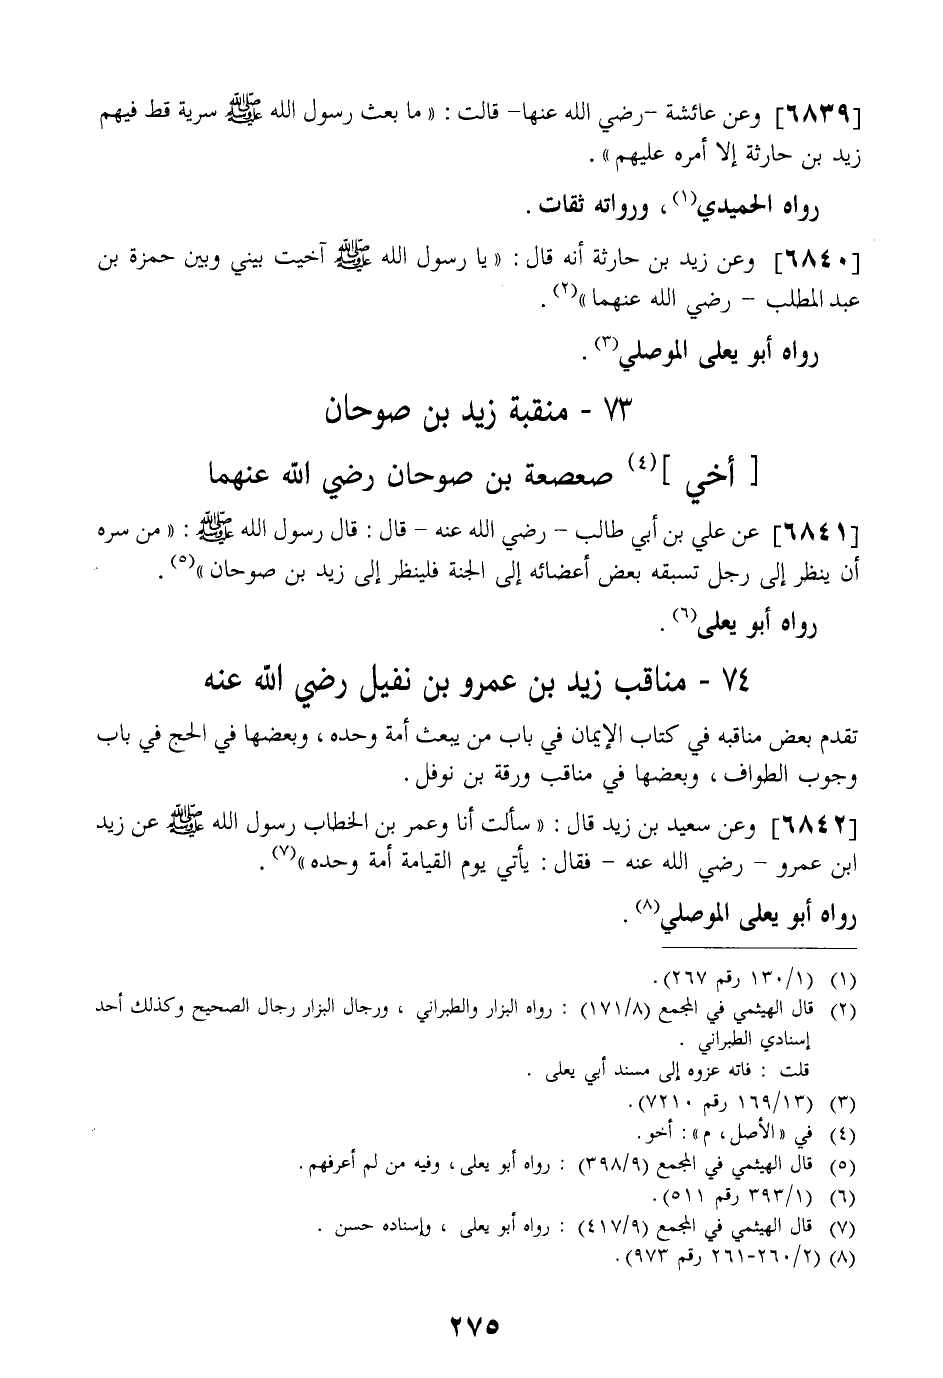 [٦٨٣٩] وعن عائشة -رضي الله عنها- قالت : « ما بعث رسول الله ﷺ سرية قط فيهم
زيد بن حارثة إلا أمره عليهم » .
رواه الحميدي(١) ، ورواته ثقات .
[٦٨٤٠] وعن زيد بن حارثة أنه قال : « يا رسول الله ﷺ آخيت بيني وبين حمزة بن
عبد المطلب - رضي الله عنهما »(٢) .
رواه أبو يعلى الموصلي(٣) .
٧٣ - منقبة زيد بن صوحان
[ أخي ](٤) صعصعة بن صوحان رضي الله عنهما
[٦٨٤١] عن علي بن أبي طالب - رضي الله عنه - قال : قال رسول الله ﷺ : « من سره
أن ينظر إلى رجل تسبقه بعض أعضائه إلى الجنة فلينظر إلى زيد بن صوحان »(٥) .
رواه أبو يعلى(٦) .
٧٤ - مناقب زيد بن عمرو بن نفيل رضي الله عنه
تقدم بعض مناقبه في كتاب الإيمان في باب من يبعث أمة وحده ، وبعضها في الحج في باب
وجوب الطواف ، وبعضها في مناقب ورقة بن نوفل .
[٦٨٤٢] وعن سعيد بن زيد قال : « سألت أنا وعمر بن الخطاب رسول الله ﷺ عن زيد
ابن عمرو - رضي الله عنه - فقال : يأتي يوم القيامة أمة وحده »(٧) .
رواه أبو يعلى الموصلي(٨) .
(١) (١/ ١٣٠ رقم ٢٦٧) .
(٢) قال الهيثمي في المجمع (٨/ ١٧١) : رواه البزار والطبراني ، ورجال البزار رجال الصحيح وكذلك أحد
إسنادي الطبراني .
قلت : فاته عزوه إلى مسند أبي يعلى .
(٣) (١٣/ ١٦٩ رقم ٧٢١٠) .
(٤) في «الأصل ، م» : أخو .
(٥) قال الهيثمي في المجمع (٩/ ٣٩٨) : رواه أبو يعلى ، وفيه من لم أعرفهم .
(٦) (١/ ٣٩٣ رقم ٥١١) .
(٧) قال الهيثمي في المجمع (٩/ ٤١٧) : رواه أبو يعلى ، وإسناده حسن .
(٨) (٢/ ٢٦٠-٢٦١ رقم ٩٧٣) .
٢٧٥